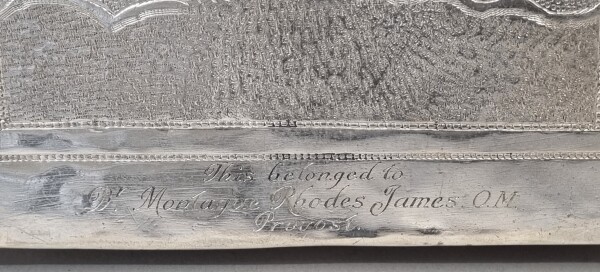 This belonged to
Dr Montague Rhodes James. O.M.
Provost.